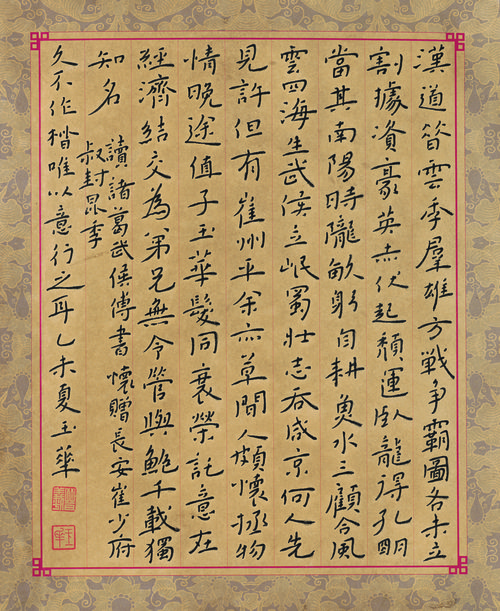 漢道昏雲季羣雄方戦争霸圖各未立
割據資豪英赤伏起頹運臥龍得孔明
當其南陽時隴畝躬自耕魚水三顧合風
雲四海生武侯立岷蜀壯志吞咸京何人先
見許但有崔州平余亦草間人頗懷拯物
情晚途值子玉華髮同衰榮託意在
經濟結交為弟兄無令管與鮑千載獨
知名
讀諸葛武侯傳書懷贈長安崔少府
叔封昆季
久不作楷唯以意行之耳乙未夏玉華